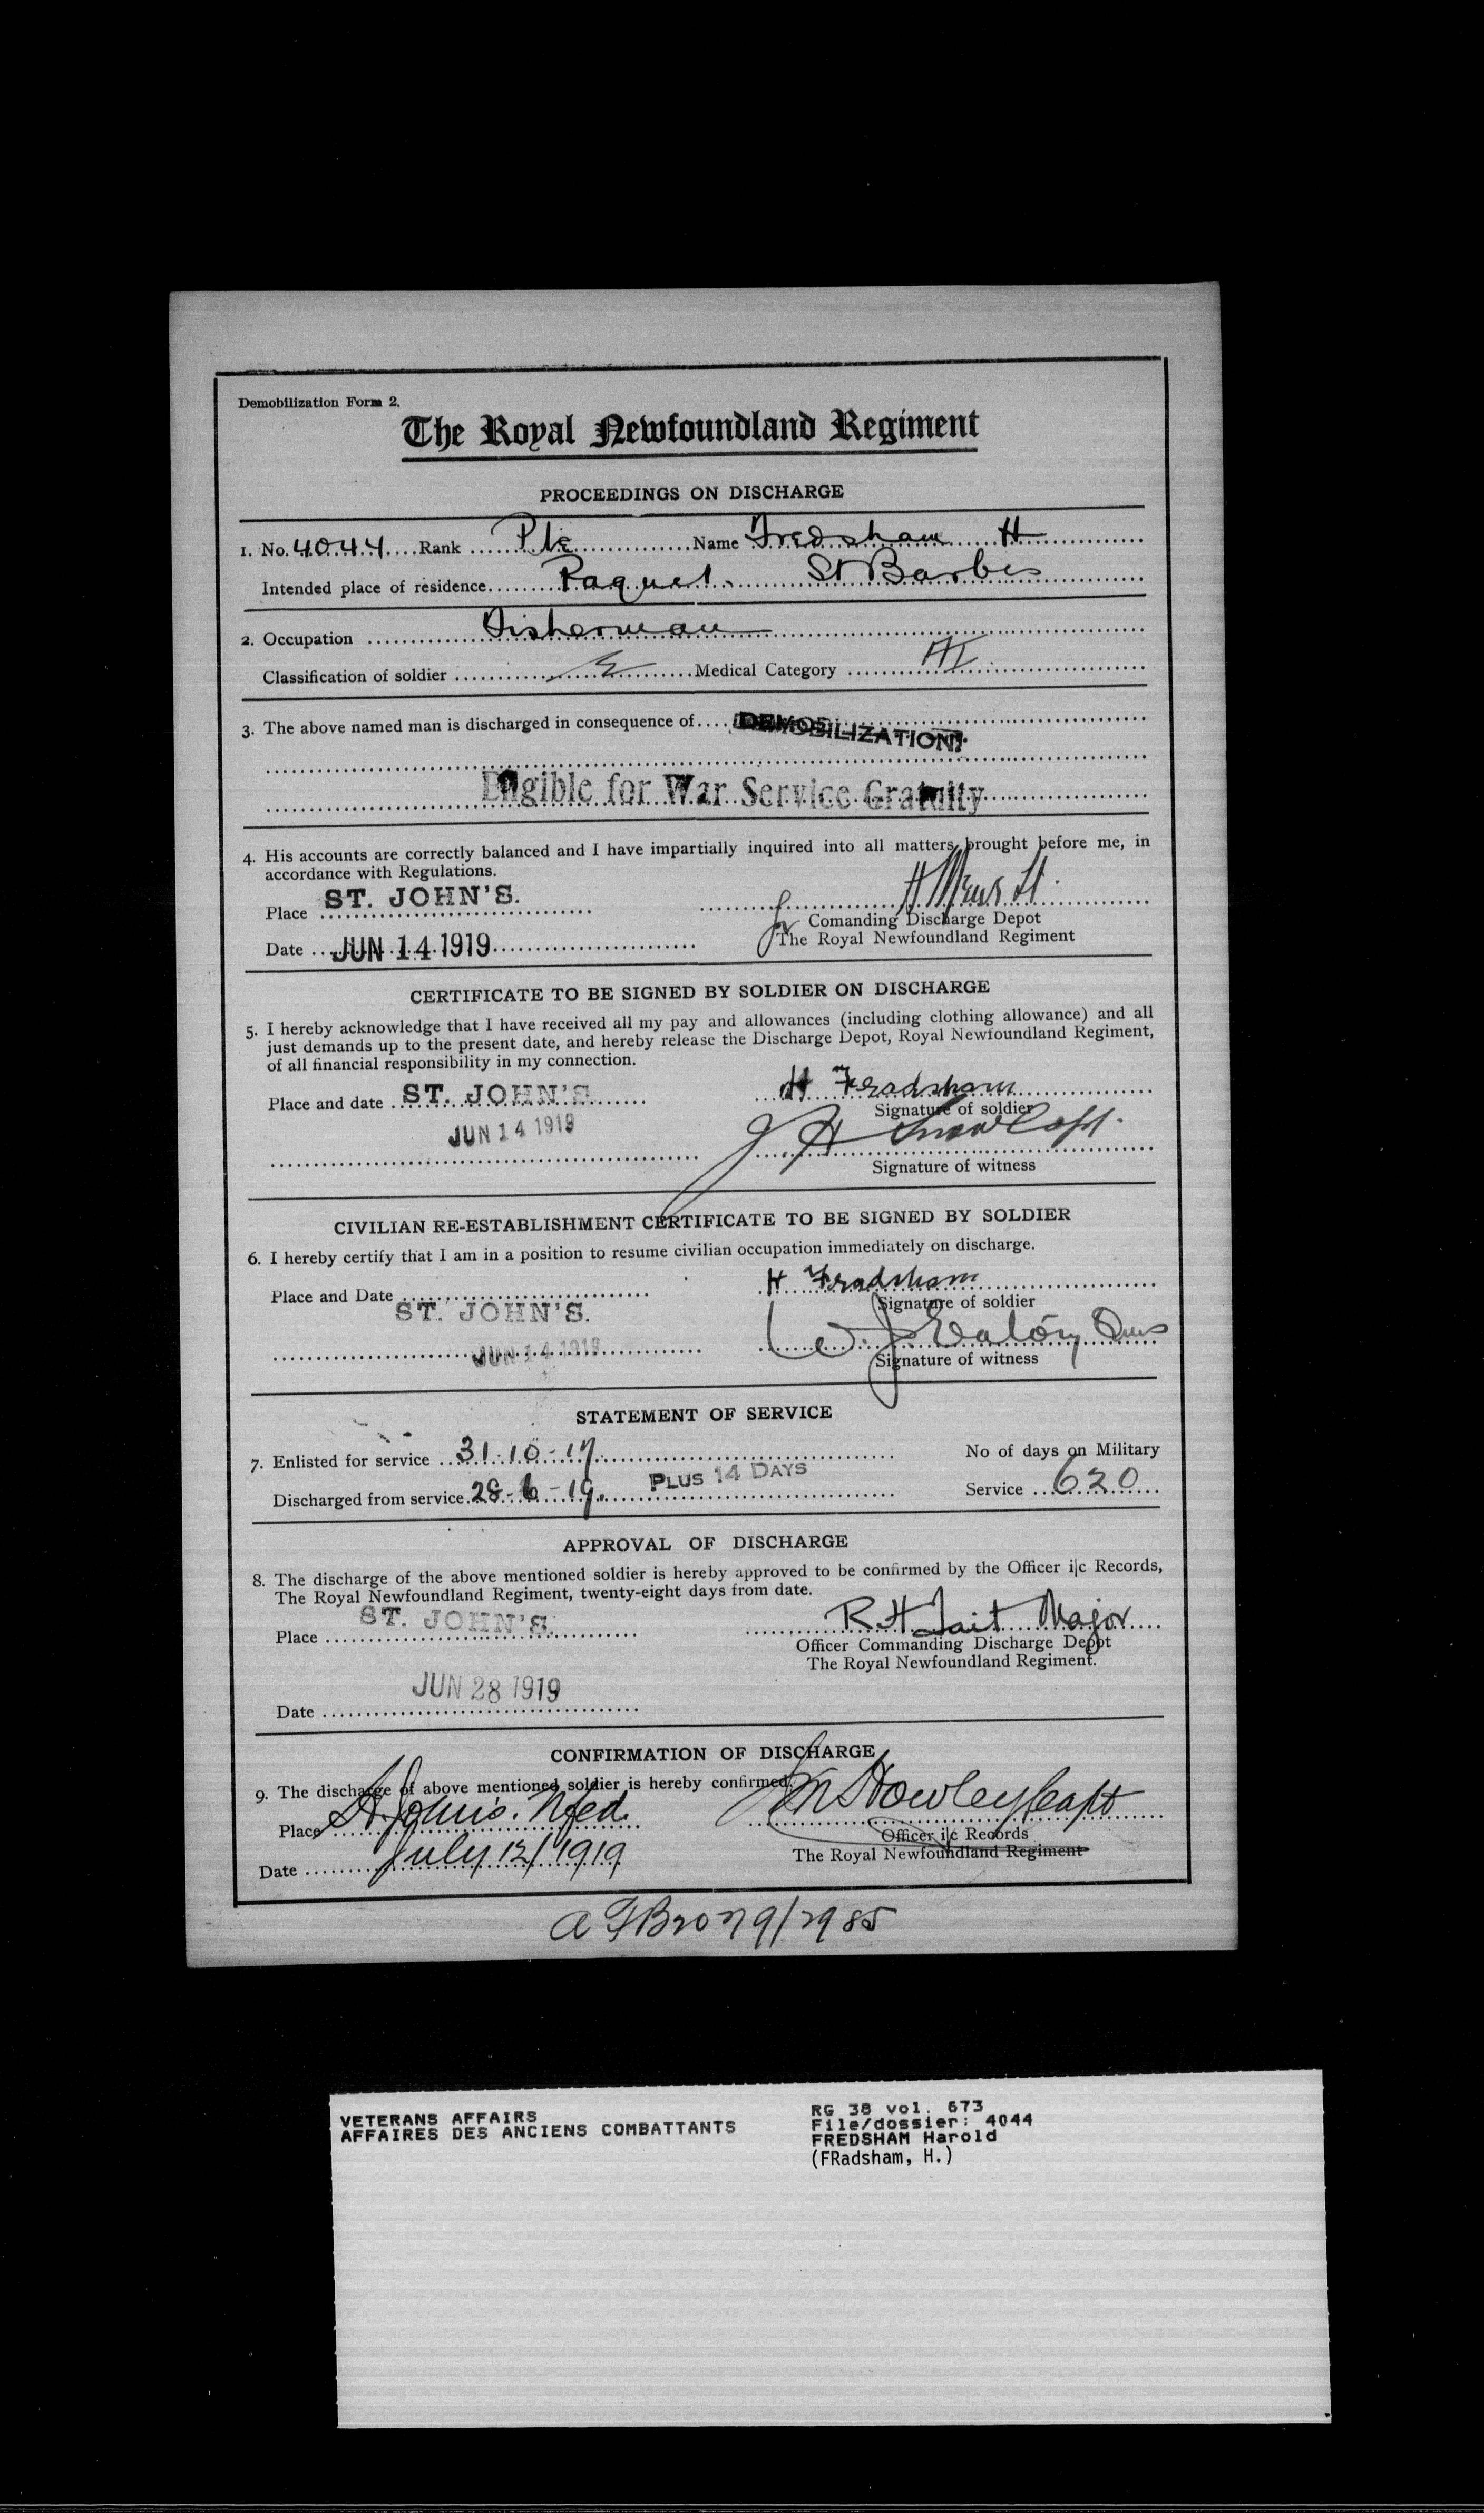 Demobilization Form 2.
The Royal Newfoundland Regiment
PROCEEDINGS ON DISCHARGE
1. No. 4044 Rank Pte Name Fredsham H
Intended place of residence Paquet. St Barbes
2. Occupation Fisherman
Classification of soldier E Medical Category AI
3. The above named man is discharged in consequence of DEMOBILIZATION.
Eligible for War Service Gratuity
4. His accounts are correctly balanced and I have impartially inquired into all matters brought before me, in
accordance with Regulations.
Place ST. JOHN'S.
for
Comanding Discharge Depot
Date JUN 14 1919 The Royal Newfoundland Regiment
CERTIFICATE TO BE SIGNED BY SOLDIER ON DISCHARGE
5. I hereby acknowledge that I have received all my pay and allowances (including clothing allowance) and all
just demands up to the present date, and hereby release the Discharge Depot, Royal Newfoundland Regiment,
of all financial responsibility in my connection.
Place and date ST. JOHN'S H Fradsham
Signature of soldier
JUN 14 1919 J H Snow Capt.
Signature of witness
CIVILIAN RE-ESTABLISHMENT CERTIFICATE TO BE SIGNED BY SOLDIER
6. I hereby certify that I am in a position to resume civilian occupation immediately on discharge.
Place and Date H Fradsham
ST. JOHN'S. Signature of soldier
JUN 14 1919 W. J. Eaton
Signature of witness
STATEMENT OF SERVICE
7. Enlisted for service 31-10-17. No of days on Military
Discharged from service 28-6-19. PLUS 14 DAYS Service 620
APPROVAL OF DISCHARGE
8. The discharge of the above mentioned soldier is hereby approved to be confirmed by the Officer i|c Records,
The Royal Newfoundland Regiment, twenty-eight days from date.
Place ST. JOHN'S. R. H. Tait Major
Officer Commanding Discharge Depot
The Royal Newfoundland Regiment.
Date JUN 28 1919
CONFIRMATION OF DISCHARGE
9. The discharge of above mentioned soldier is hereby confirmed.
Place St. John's. Nfld. Howley Capt
Officer i|c Records
Date July 12/1919 The Royal Newfoundland Regiment
AFB2079/2985
VETERANS AFFAIRS
AFFAIRES DES ANCIENS COMBATTANTS
RG 38 vol. 673
File/dossier: 4044
FREDSHAM Harold
(FRadsham, H.)